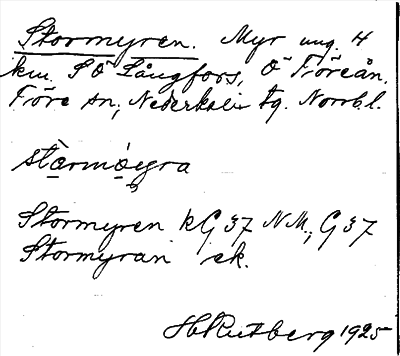 Stormyren. Myr ung. 4
km. SÖ Långfors, Ö Töreån.
Töre sn; Nederkalix tg. Norrb.l.
stòrmóyra
Stormyren kG 37 NM; G 37
Stormyran ek.
H Rutberg 1925